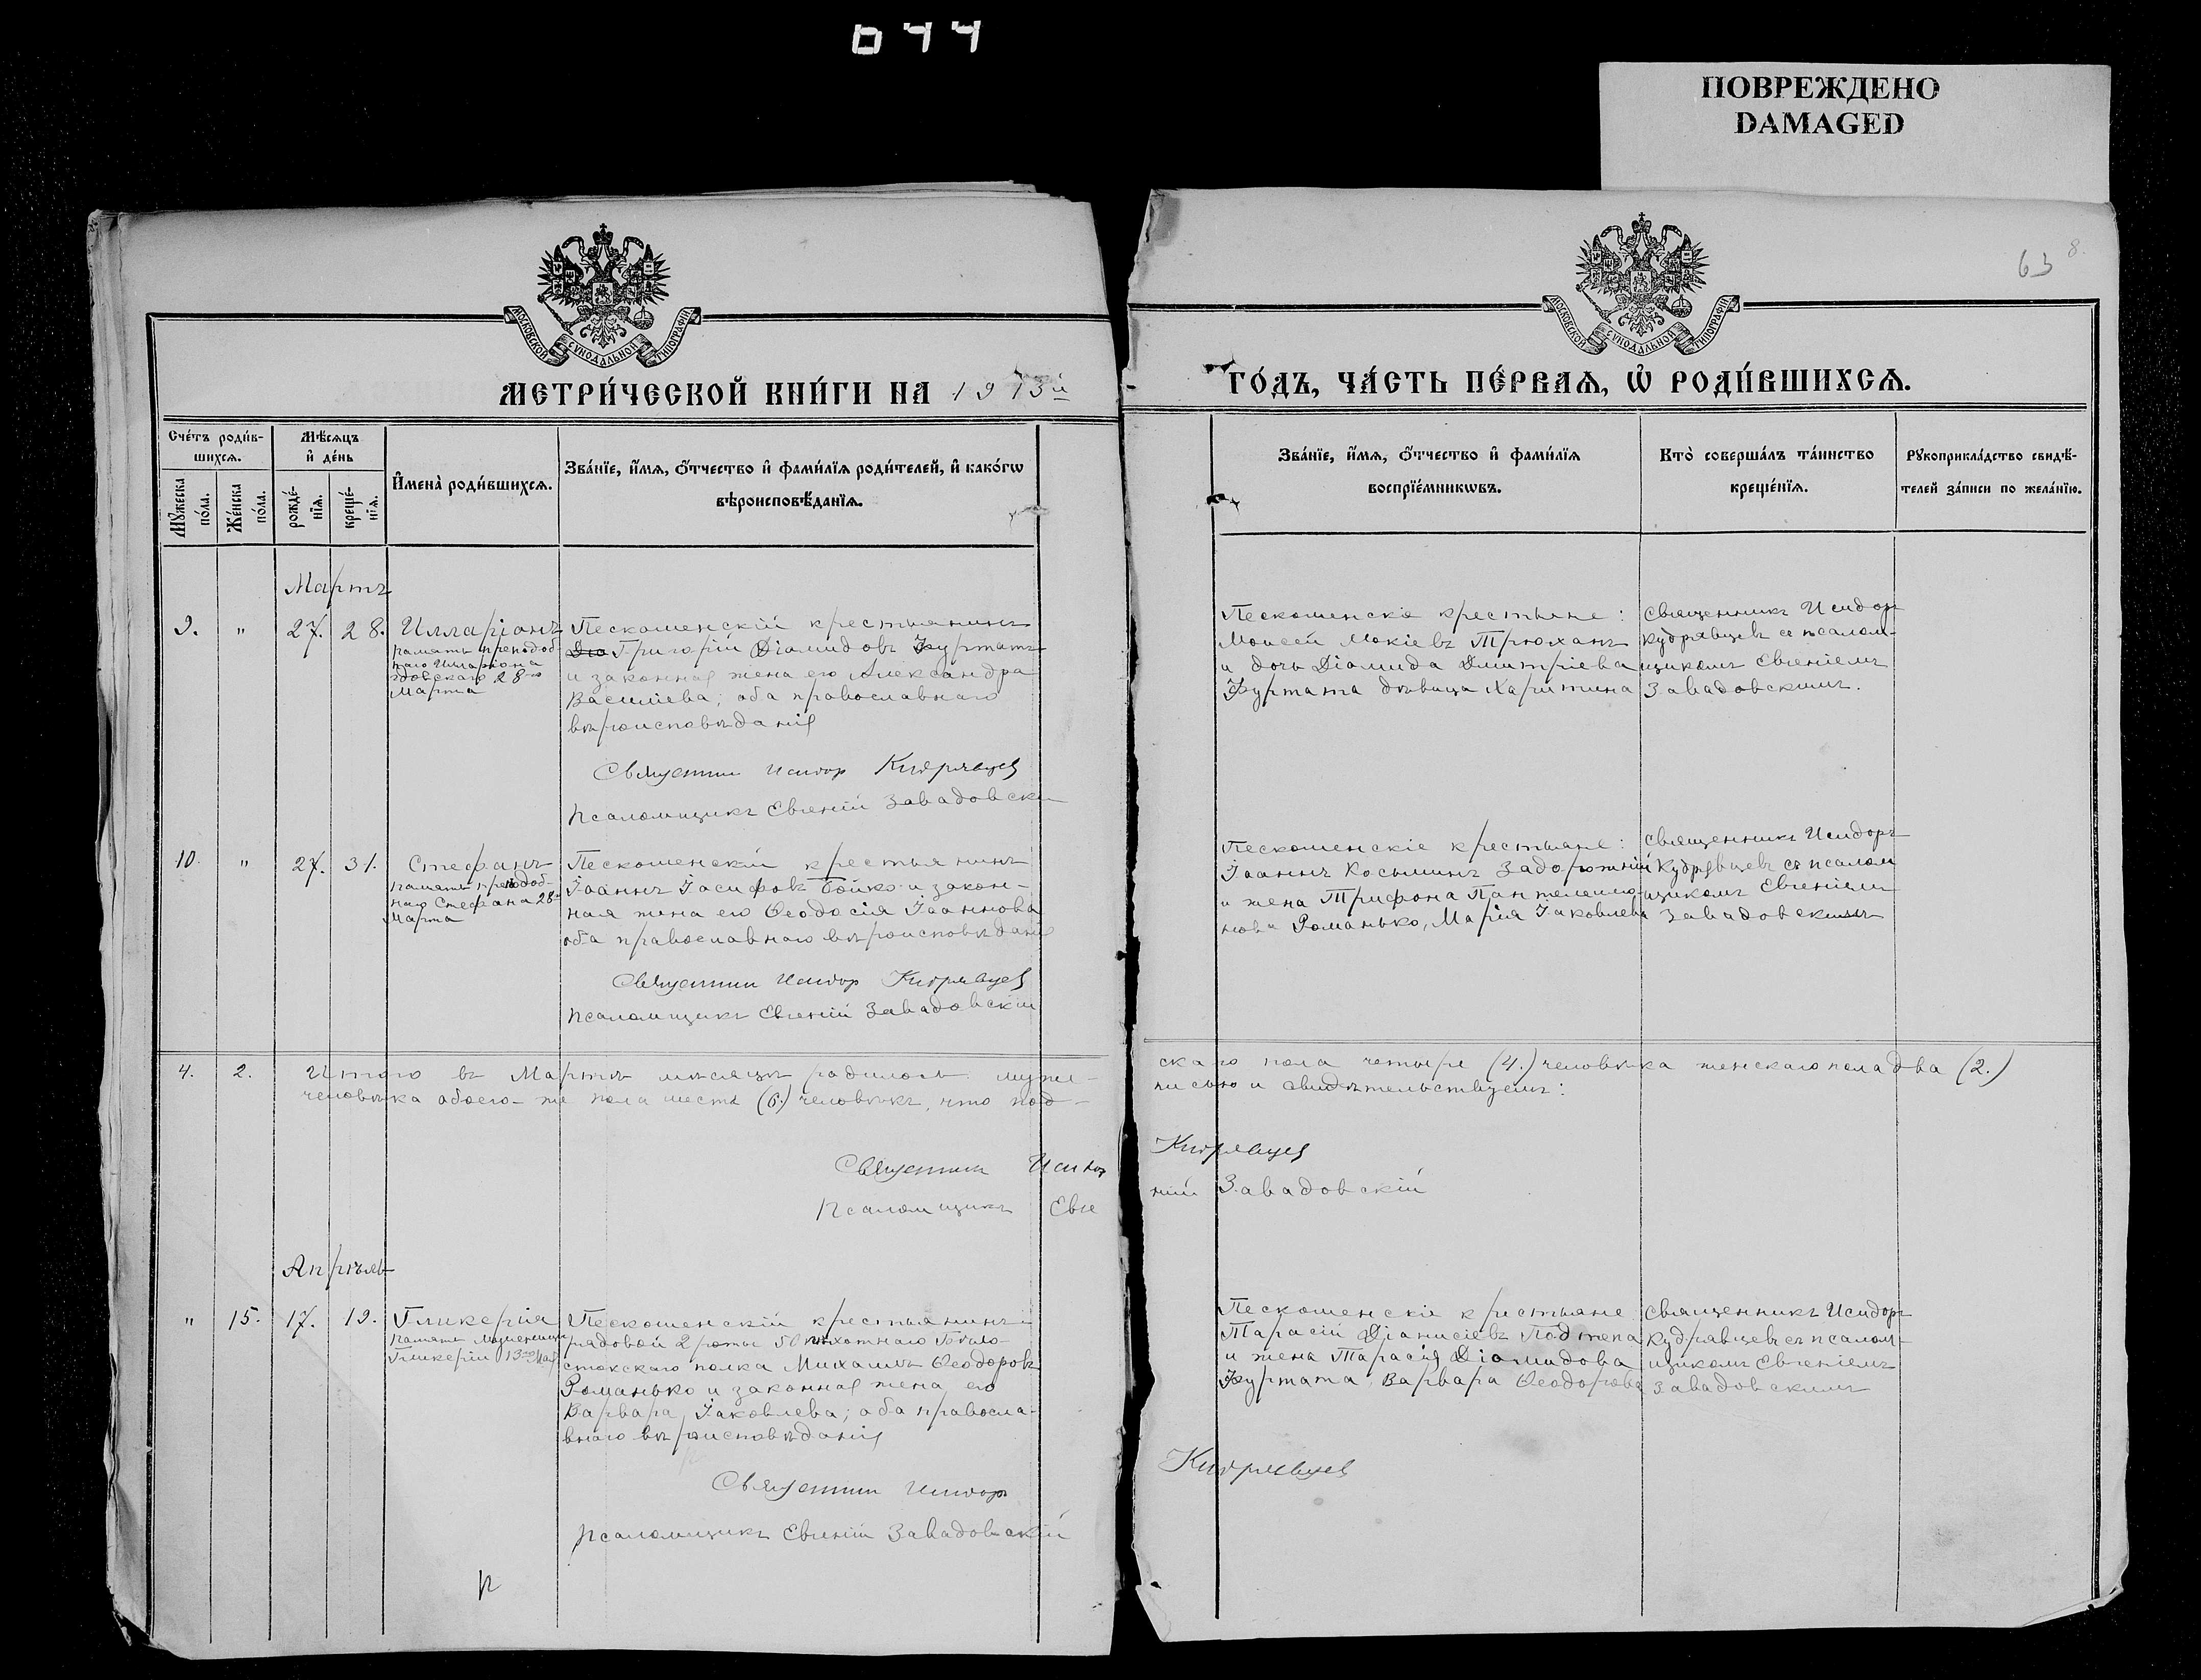 044
ПОВРЕЖДЕНО
DAMAGED
63 8.
МОСКОВСКОЙ СѴНОДАЛЬНОЙ ТИПОГРАФІИ
МОСКОВСКОЙ СѴНОДАЛЬНОЙ ТИПОГРАФІИ
МЕТРИ́ЧЕСКОЙ КНИ́ГИ НА 1913й
ГО́ДЪ, ЧА́СТЬ ПЕ́РВАѦ, Ѡ҆ РОДИ́ВШИХСѦ.
Сче́тъ роди́в-
шихсѧ.
Мѣ́сѧцъ
и҆ де́нь
И҆мена̀ роди́вшихсѧ.
Зва́нїе, и҆́мѧ, ѻ҆́тчество и҆ фами́лїѧ роди́телей, и҆ како́гѡ
вѣроисповѣ́данїѧ.
Мꙋ́жеска
по́ла.
Же́нска
по́ла.
рожде́-
нїѧ.
креще́-
нїѧ.
Зва́нїе, и҆́мѧ, ѻ҆́тчество и҆ фами́лїѧ
воспрїе́мникѡвъ.
Кто̀ соверша́лъ та́инство
креще́нїѧ.
Рꙋкоприкла́дство свидѣ́-
телей за́писи по жела́нїю.
Мартъ
9. " 27. 28. Илларіонъ
память преподоб-
наго Илларіона
28го
Марта
Пескошенскій крестьянинъ
Григорій Діомидовъ Фуртатъ
и законная жена его Александра
Василіева; оба православнаго
вѣроисповѣданія
Священник Исидор Кудрявцев
Псаломщикъ Евгеній Завадовскі
Пескошенскіе крестьяне:
Моисей Мокіевъ Трюханъ
и дочь Діомида Димитріева
Фуртата дѣвица Харитина
Священникъ Исидоръ
Кудрявцевъ съ псалом-
щикомъ Евгеніемъ
Завадовскимъ.
10. " 27. 31. Стефанъ
память преподоб-
наго Стефана 28
Марта
Пескошенскій крестьянинъ
Іоаннъ Іосифовъ Бойко и закон-
ная жена его Ѳеодосія Іоаннова
оба православнаго вѣроисповѣданія
Священник Исидор Кудрявцев
Псаломщикъ Евгеній Завадовскій
Пескошенскіе крестьяне:
Іоаннъ Косьминъ Задорожній
и жена Трифона Пантелеимо-
нова Романько, Марія Іаковлева
Священникъ Исидоръ
Кудрявцевъ съ псалом
щикомъ Евгеніемъ
Завадовскимъ
4. 2. Итого въ Мартѣ мѣсяцѣ родилось мужe-
скаго пола четыре (4.) человѣка женскаго пола два (2.)
человѣка обоего-же пола шесть (6.) человѣкъ, что под-
писью и свидѣтельствуемъ:
Священник Исидор
Кудрявцев
Псаломщикъ Евге
ній Завадовскій
Апрѣль
" 15. 17. 19. Гликерія
память мученицы
Гликеріи 13го Мая
Пескошенскій крестьянинъ
рядовой 2 роты 50 пѣхотнаго Бѣло-
стокскаго полка Михаилъ Ѳеодоровъ
Романько и законная жена его
Варвара Іаковлева; оба правосла-
внаго вѣроисповѣданія
Священник Исидор
Кудрявцев
Псаломщикъ Евгеній Завадовскій
Пескошенскіе крестьяне
Тарасій Діонисіевъ Подтепа
и жена Тарасія Діомидова
Фуртата Варвара Ѳеодорова
Священникъ Исидоръ
Кудрявцевъ съ псалом-
щикомъ Евгеніемъ
Завадовскимъ